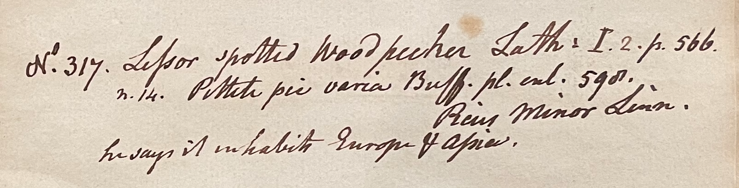 No. 317. Lessor spotted Woodpecker Lath: I. 2. p. 566.
n. 14. Pettite pie varia Buff. pl. enl. 598.
Picus Minor Linn.
he says it inhabits Europe & Asia.